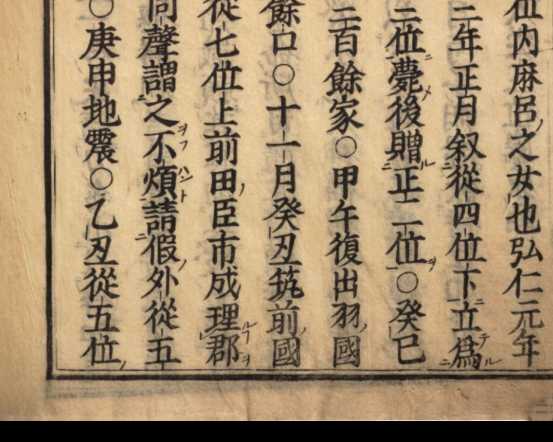 位内麻呂ノ之女也弘仁元年
二年正月叙從四位下立テ爲ル
二位薨後贈正二位○癸巳
二百餘家○甲午復出羽ノ國
餘口○十一月癸丑筑前ノ國
從七位上前田ノ臣市成理郡
同聲謂之不煩請假外從五
○庚申地震○乙丑從五位ノ